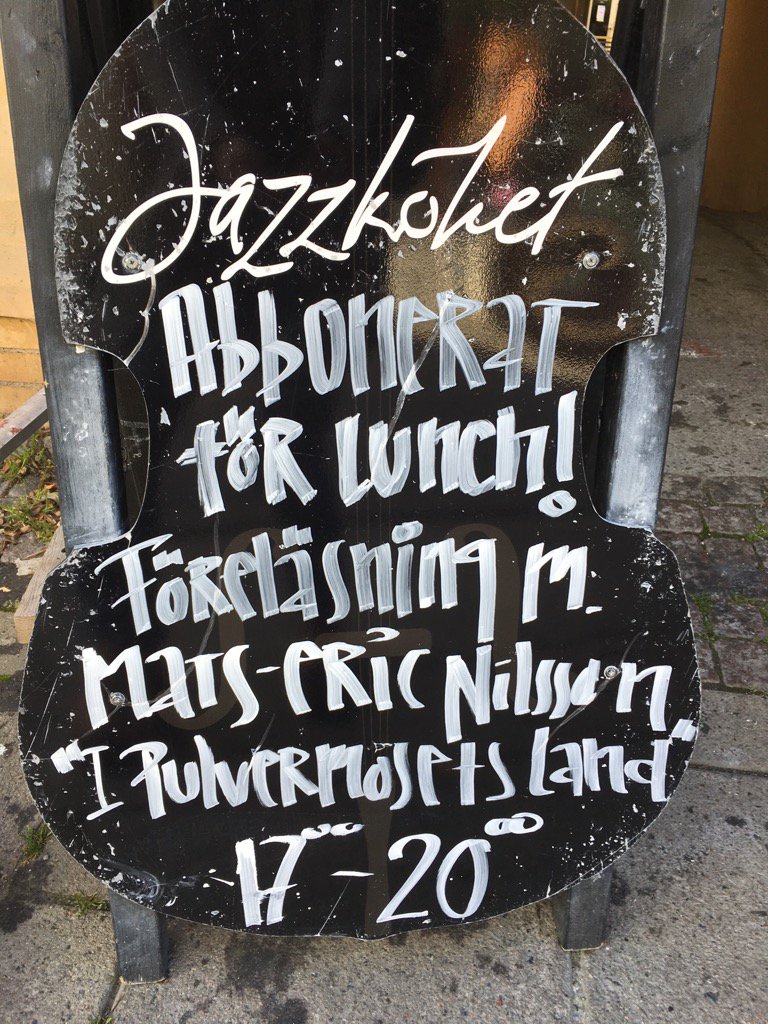 Jazzköket
Abbonerat
för Lunch!
Föreläsning m.
Mats-Eric Nilsson
"I Pulvermosets land"
17⁰⁰-20⁰⁰